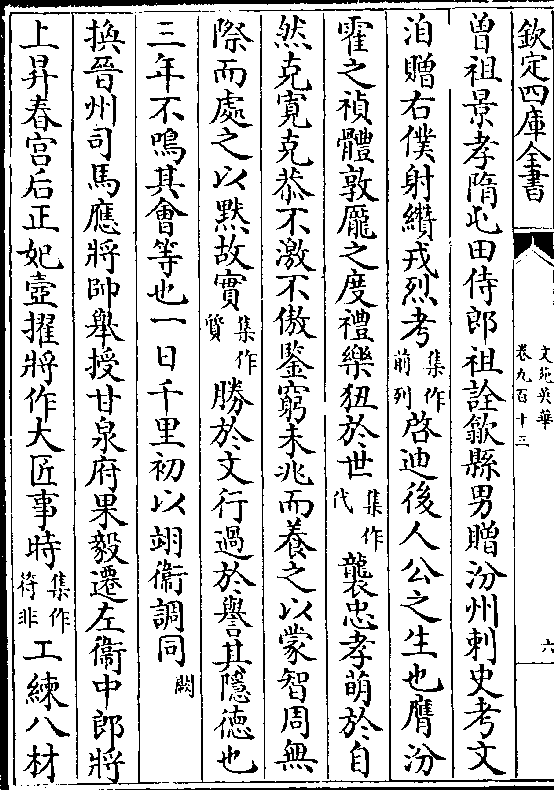 欽定四庫全書
文苑英華
卷九百十三
六
曽祖景孝隋屯田侍郎祖詮歙縣男贈汾州刺史考文
洎贈右僕射纘戎烈考集作前列啓迪後人公之生也膺汾
霍之禎體敦龎之度禮樂狃於世集作代襲忠孝萌於自
然克寛克恭不激不傲鑒窮未兆而養之以蒙智周無
際而處之以黙故實集作質勝於文行過於譽其隠徳也
三年不鳴其㑹等也一日千里初以翊衞調同闕
換晉州司馬應將帥舉授甘泉府果毅遷左衞中郎將
上昇春宫后正妃壼擢將作大匠事時集作符非工練八材